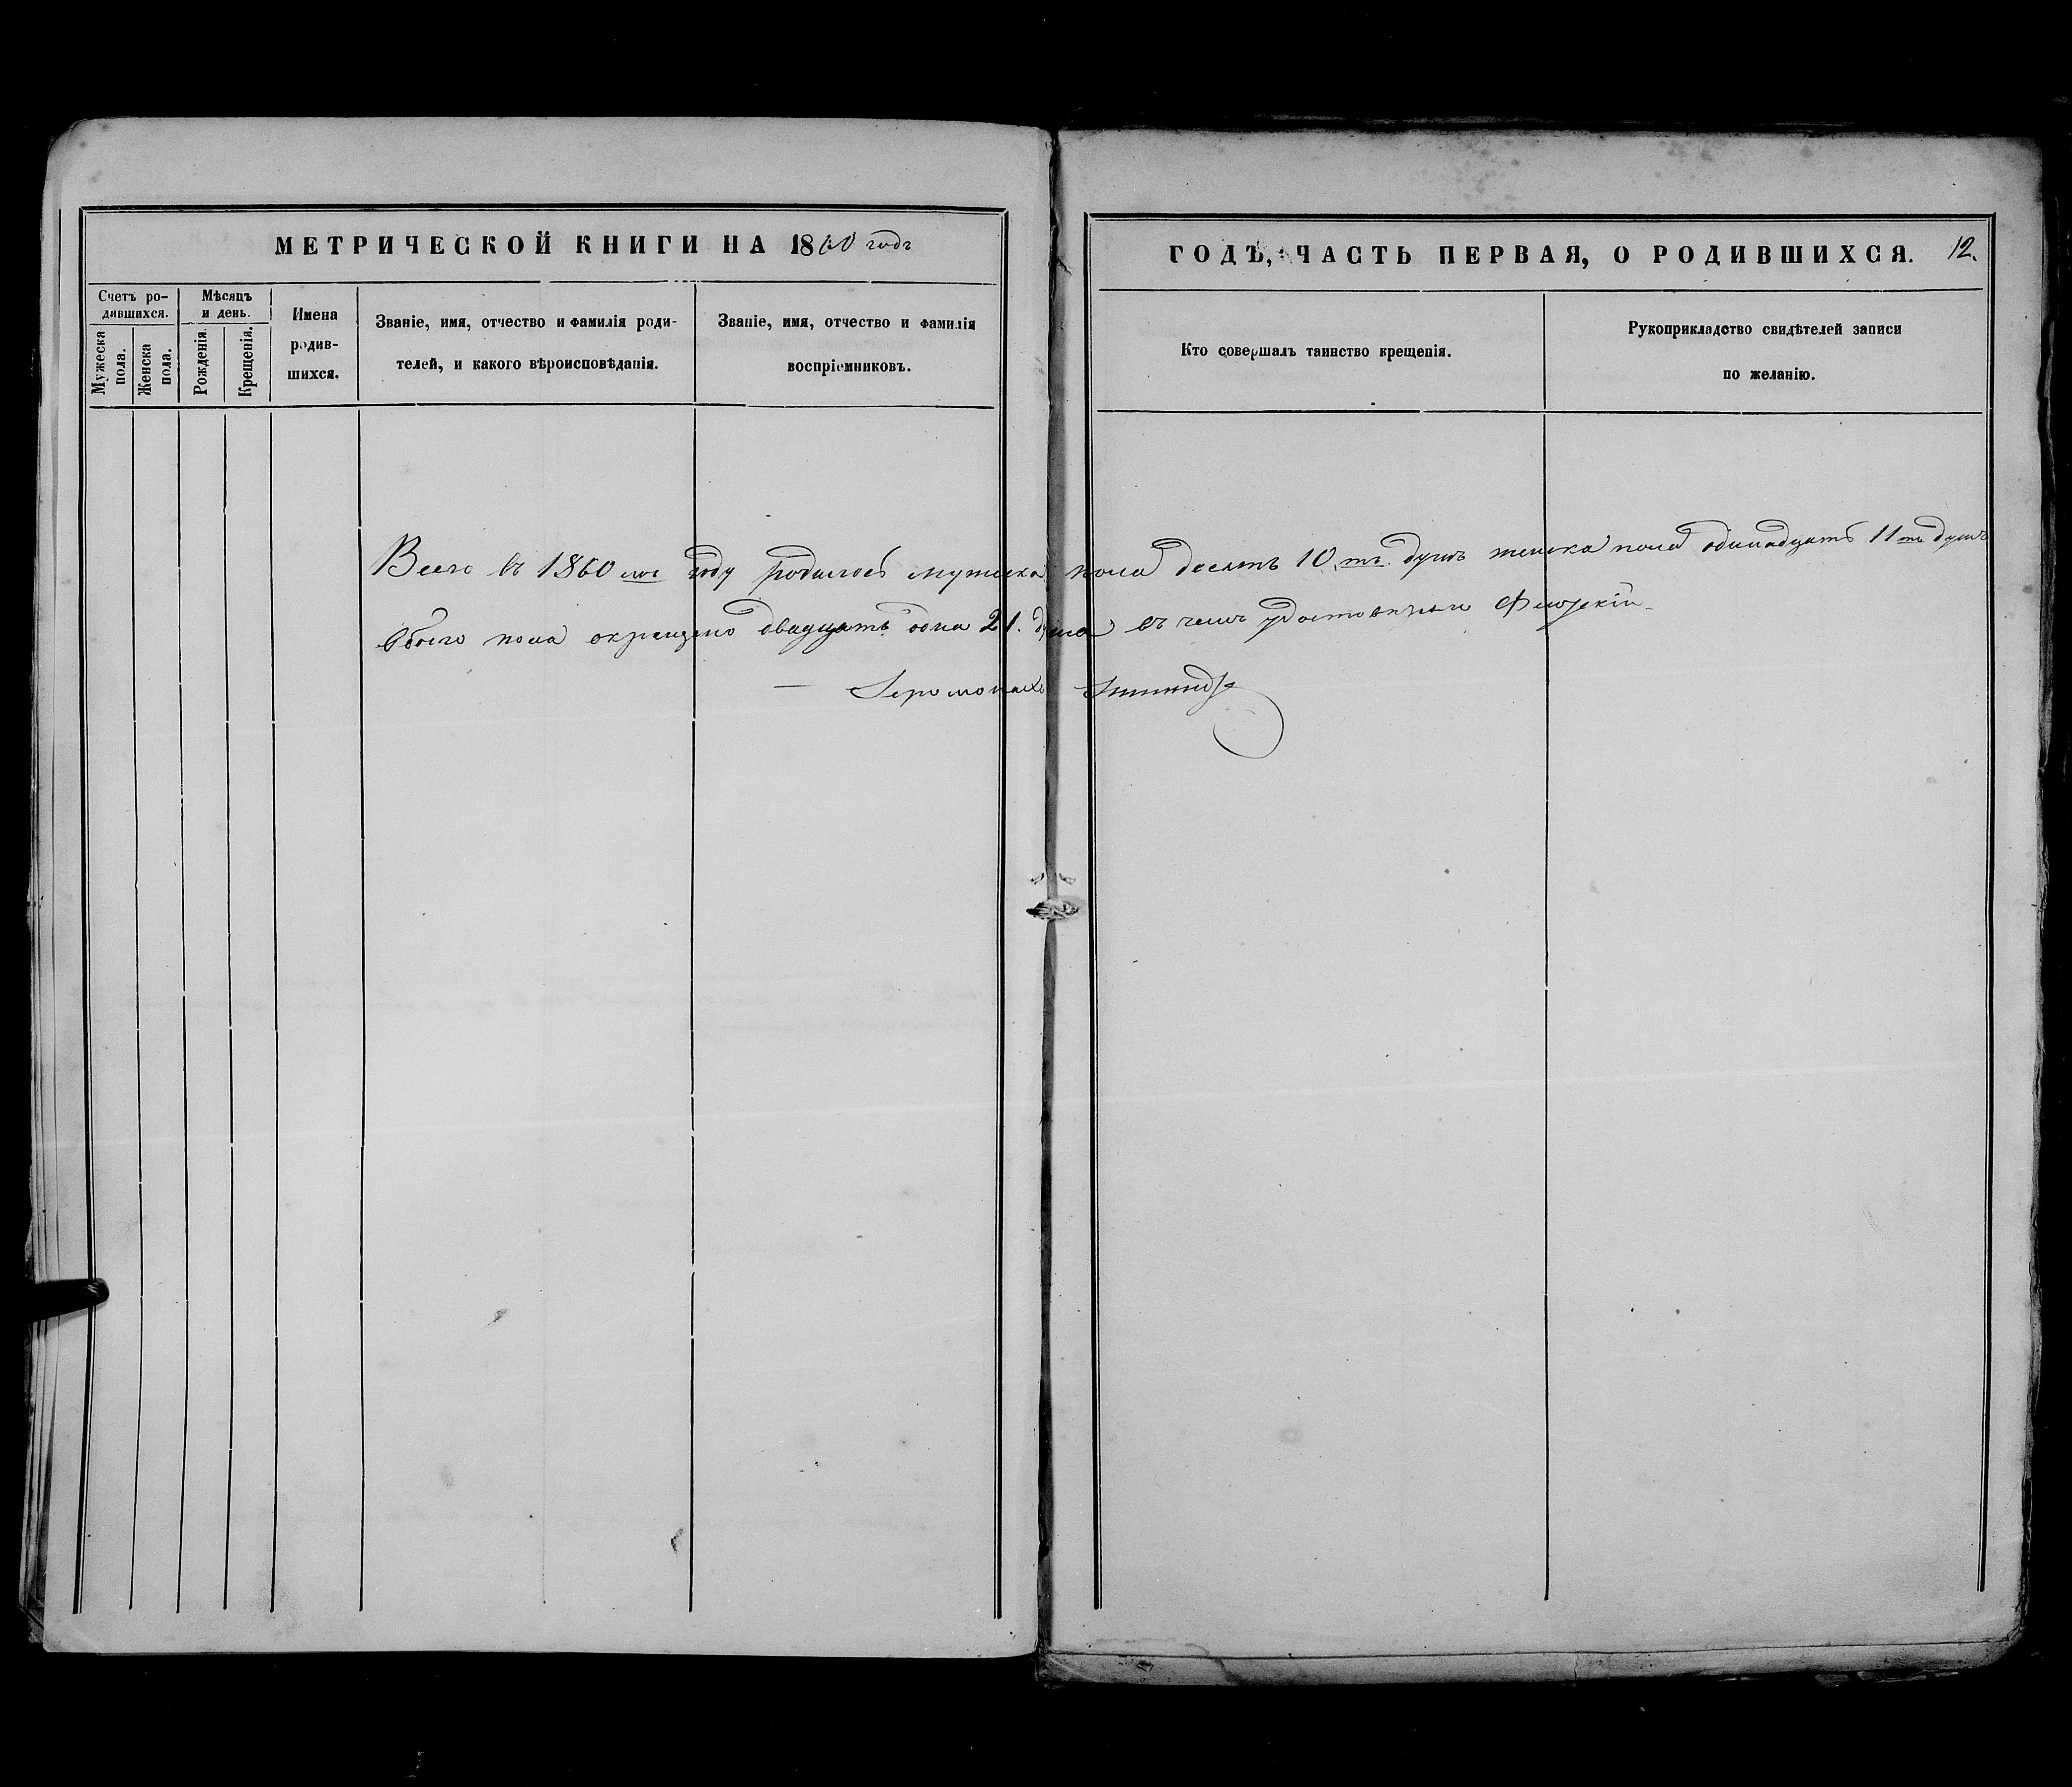 МЕТРИЧЕСКОЙ КНИГИ НА 1860 годъ
Счетъ ро-
дившихся.
Мужеска пола.
Женска пола.
Мѣсяцъ
и день.
Рожденія.
Крещенія.
Имена
родив-
шихся.
Званіе, имя, отчество и фамилія роди-
телей, и какого вѣроисповѣданія.
Званіе, имя, отчество и фамилія
воспріемниковъ.
ГОДЪ, ЧАСТЬ ПЕРВАЯ, О РОДИВШИХСЯ. 12.
Кто совершалъ таинство крещенія.
Рукоприкладство свидѣтелей записи
по желанію.
Всего въ 1860 мъ году родилось мужеска пола десять 10.ть. душъ женска пола одинадцать 11 ть душъ
Обоего пола окрещено двадцать одна 21. душа въ чемъ
Іеромонахъ